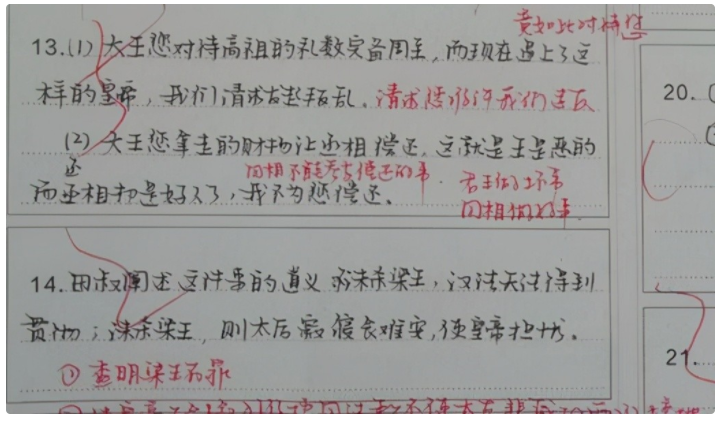 竟如此对待您
13.(1) 大王您对待高祖的礼数完备周全，而现在遇上了这
样的皇帝，我们请求去起叛乱。请求您允许我们造反
(2) 大王您拿走的财物让丞相偿还，这就是王是恶的
还
而丞相却是好人了，我不为您偿还。
田相不能参与偿还的事.
君王做坏事
田相做好事.
14. 田叔阐述这件事的道义 不诛杀梁王，汉法无法得到
贯彻；诛杀梁王，则太后寝食难安，使皇帝担忧。
① 查明梁王的罪
20.
21.